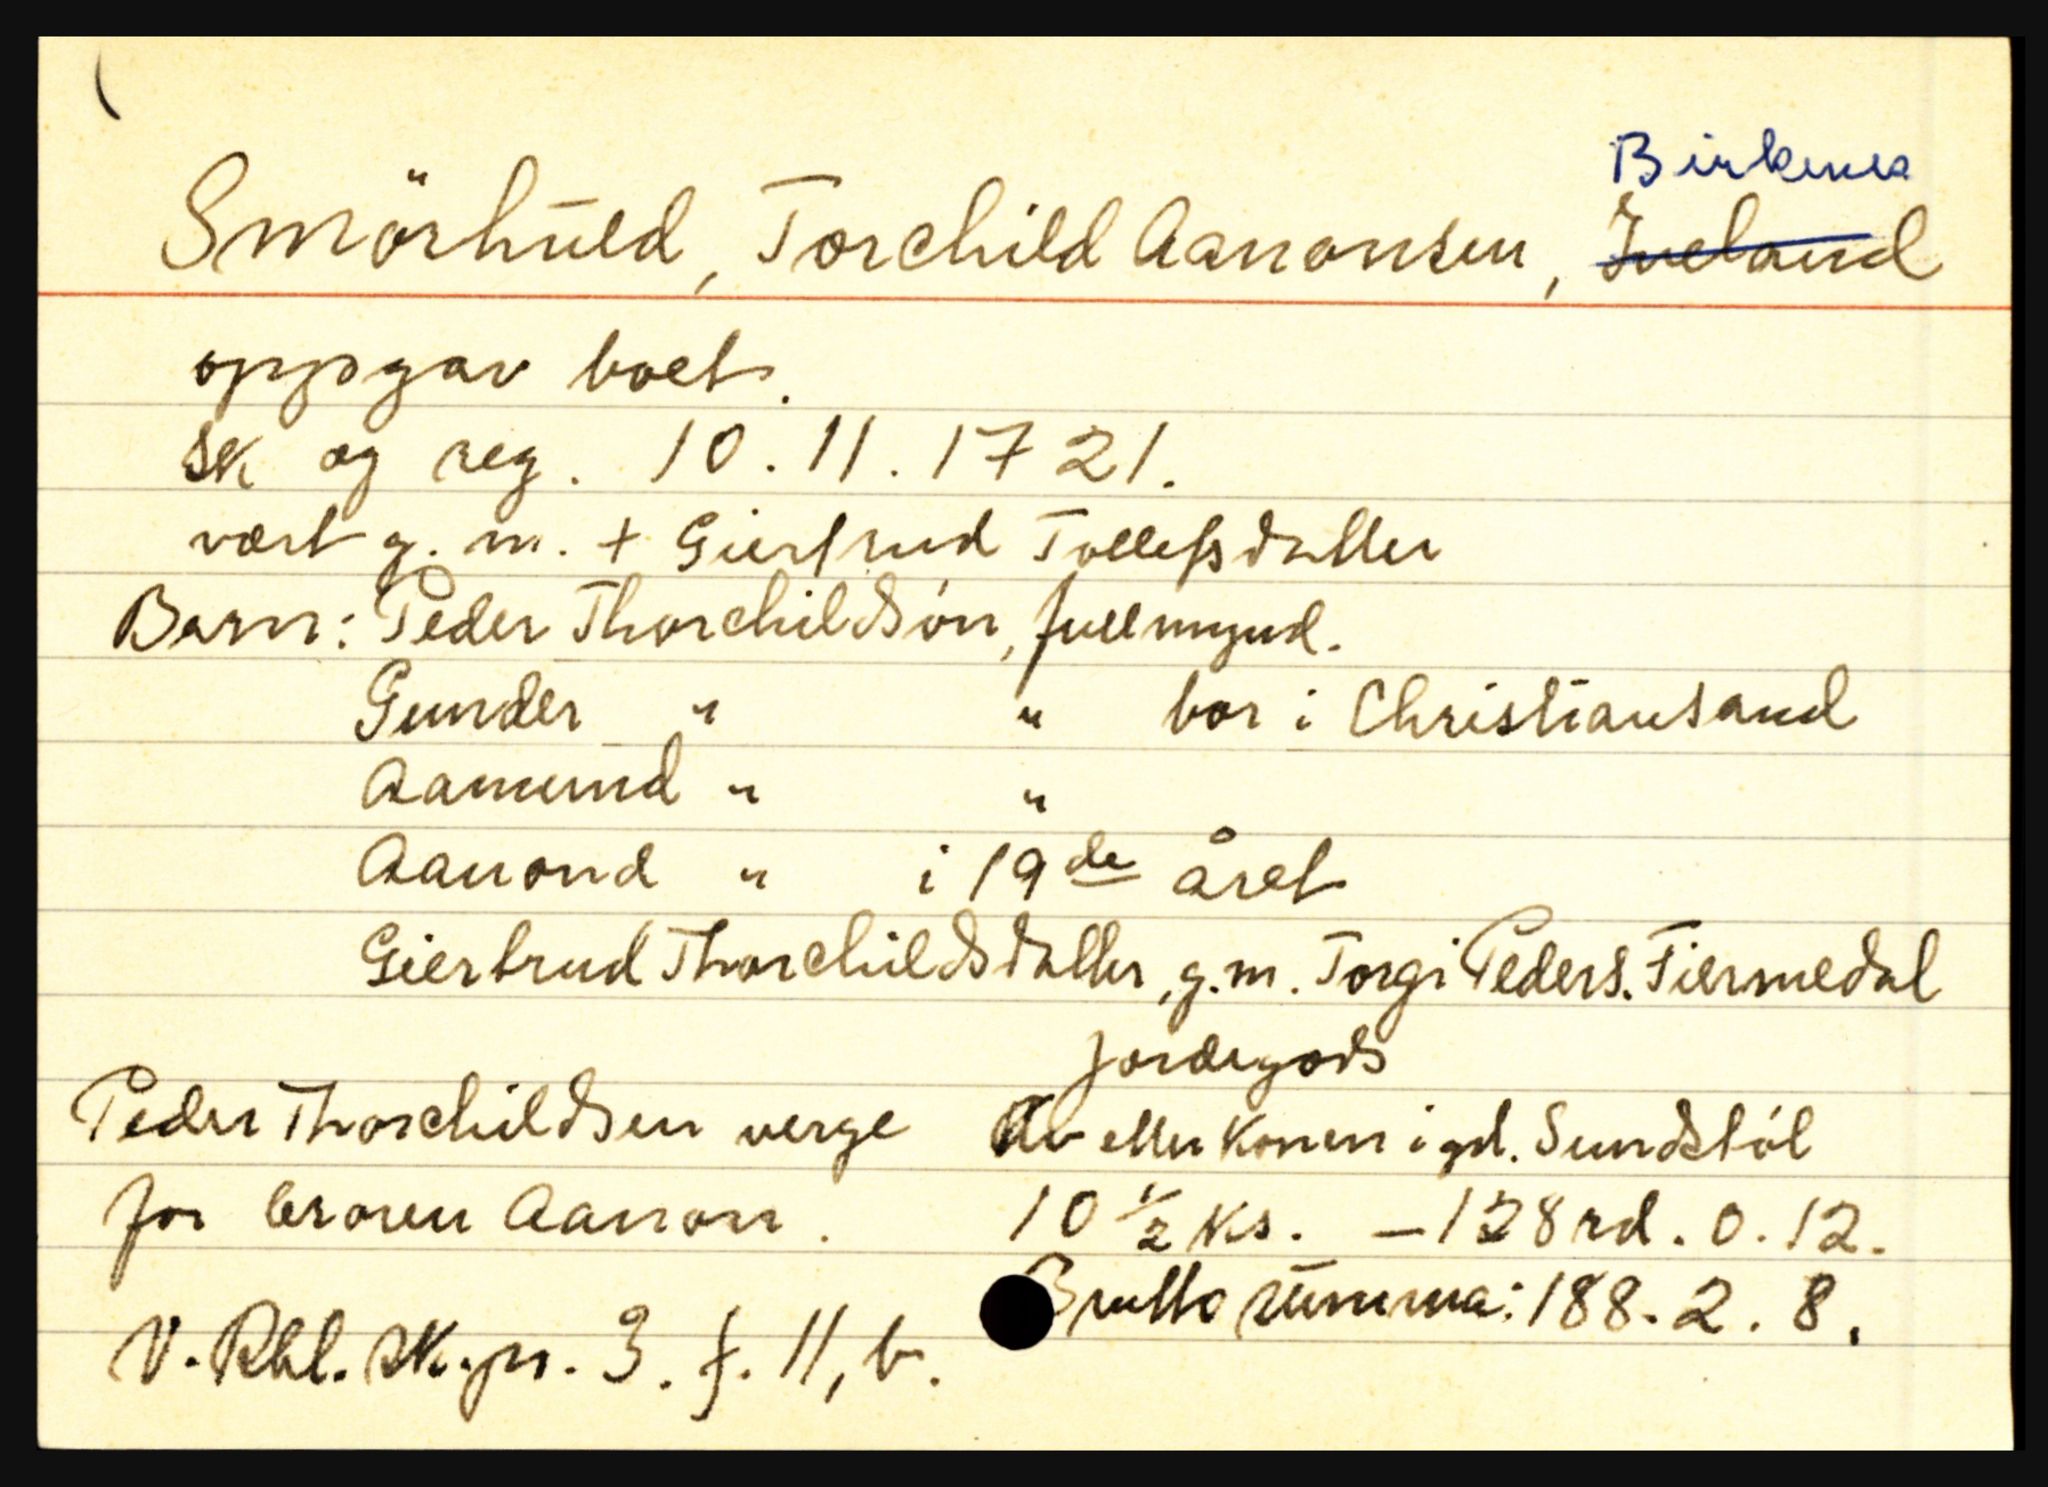 Birkenes
Smörhuld, Torchild Aanonsen, Iveland
oppgav boet.
sk og reg. 10.11.1721.
vært g. m. + Giertrud Tollefsdatter
Barn: Peder Thorchildsön, fullmynd.
Gunder " " bor i Christiansand
Aamund " "
Aanond " i 19de året
Giertrud Thorchildsdatter, g.m. Torgi Peders. Fiermedal
Jordegods
Peder Thorchildsen verge
for broren Aanon.
V. Rbl. sk.pr. 3. f. 11, b.
Av etter konen i gd. Sundstöl
10 1/2 ks. – 128 rd. 0. 12.
Brutto summa: 188. 2. 8.